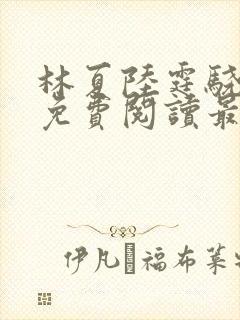 林夏陸霆驍
免費閱讀最
伊凡·福布萊